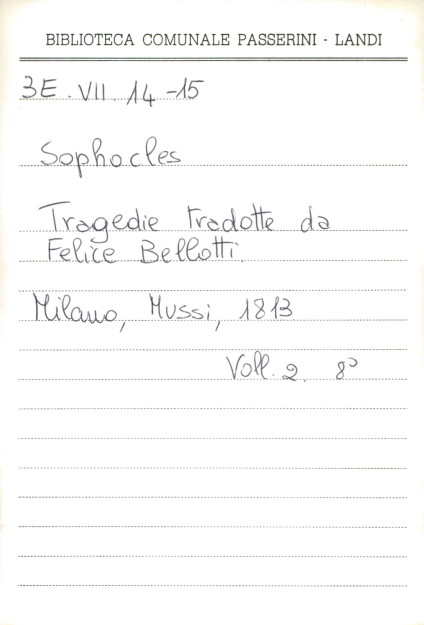 BIBLIOTECA COMUNALE PASSERINI - LANDI
3E. VII. 14-15
Sophocles
Tragedie tradotte da
Felice Bellotti.
Milano, Mussi, 1813
Voll. 2. 8°